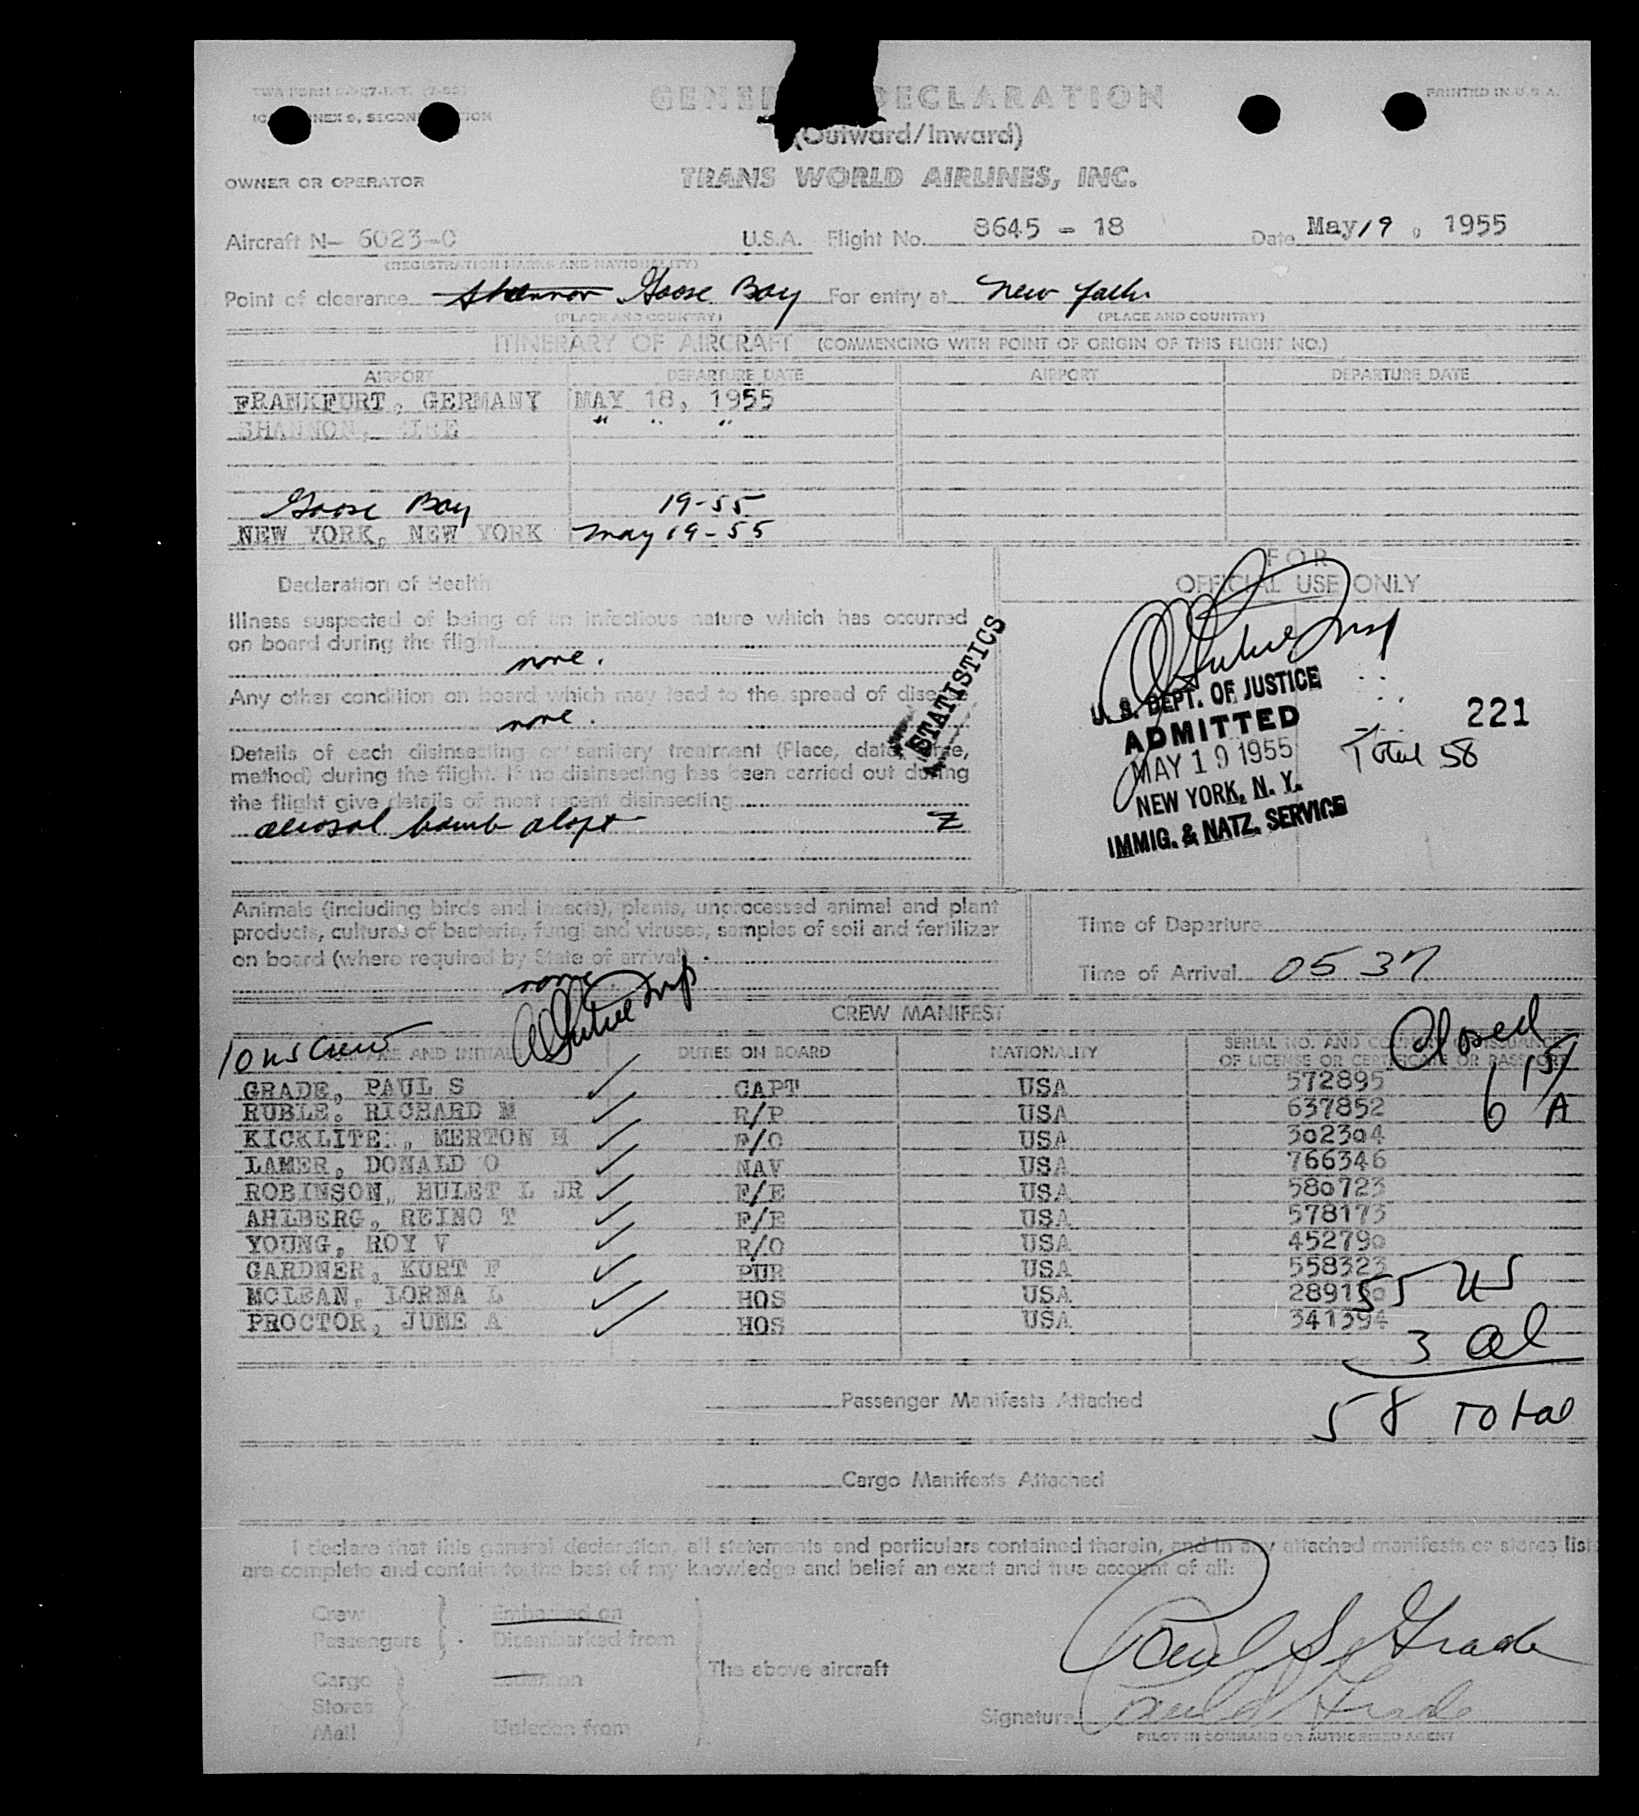 PRINTED IN U.S.A.
GENE DECLARATION
(Outward/Inward)
OWNER OR OPERATOR
TRANS WORLD AIRLINES, INC.
Aircraft N- 6023-C U.S.A. Flight No. 8645 - 18 Date May 19, 1955
(REGISTRATION MARKS AND NATIONALITY)
Point of clearance Shannon Goose Bay For entry at New York
(PLACE AND COUNTRY) (PLACE AND COUNTRY)
ITINERARY OF AIRCRAFT (COMMENCING WITH POINT OF ORIGIN OF THIS FLIGHT NO.)
AIRPORT DEPARTURE DATE AIRPORT DEPARTURE DATE
FRANKFURT, GERMANY MAY 18, 1955
SHANNON, EIRE " " "
Goose Bay 19-55
NEW YORK, NEW YORK May 19-55
FOR
OFFICIAL USE ONLY
Declaration of Health
Illness suspected of being of an infectious nature which has occurred
on board during the flight
none.
Any other condition on board which may lead to the spread of disease
none.
STATISTICS
Details of each disinsecting or sanitary treatment (Place, date, time,
method) during the flight. If no disinsecting has been carried out during
the flight give details of most recent disinsecting
aerosol bomb Z
U. S. DEPT. OF JUSTICE
ADMITTED
MAY 19 1955
NEW YORK, N. Y.
IMMIG. & NATZ. SERVICE
221
Total 58
Animals (including birds and insects), plants, unprocessed animal and plant
products, cultures of bacteria, fungi and viruses, samples of soil and fertilizer
on board (where required by State of arrival)
none.
Time of Departure
Time of Arrival 0537
CREW MANIFEST
10 US Crew
Closed
DUTIES ON BOARD NATIONALITY
GRADE, PAUL S CAPT USA 572895
RUBLE, RICHARD M R/P USA 637852
KICKLITE, MERTON H F/O USA 302304
LAMER, DONALD O NAV USA 766346
ROBINSON, HULET L JR F/E USA 580723
AHLBERG, REINO T F/E USA 578173
YOUNG, ROY V R/O USA 452790
GARDNER, KURT F PUR USA 558323
MCLEAN, LORNA L HOS USA
PROCTOR, JUNE A HOS USA 341394
55 US
3 al
58 Total
Passenger Manifests Attached
Cargo Manifests Attached
I declare that this general declaration, all statements and particulars contained therein, and in any attached manifests or stores list
are complete and contain to the best of my knowledge and belief an exact and true account of all:
Crew Embarked on
Passengers Disembarked from
Cargo
Stores
Mail Unladen from
The above aircraft
Paul S. Grade
Signature Paul S Grade
PILOT IN COMMAND OR AUTHORIZED AGENT